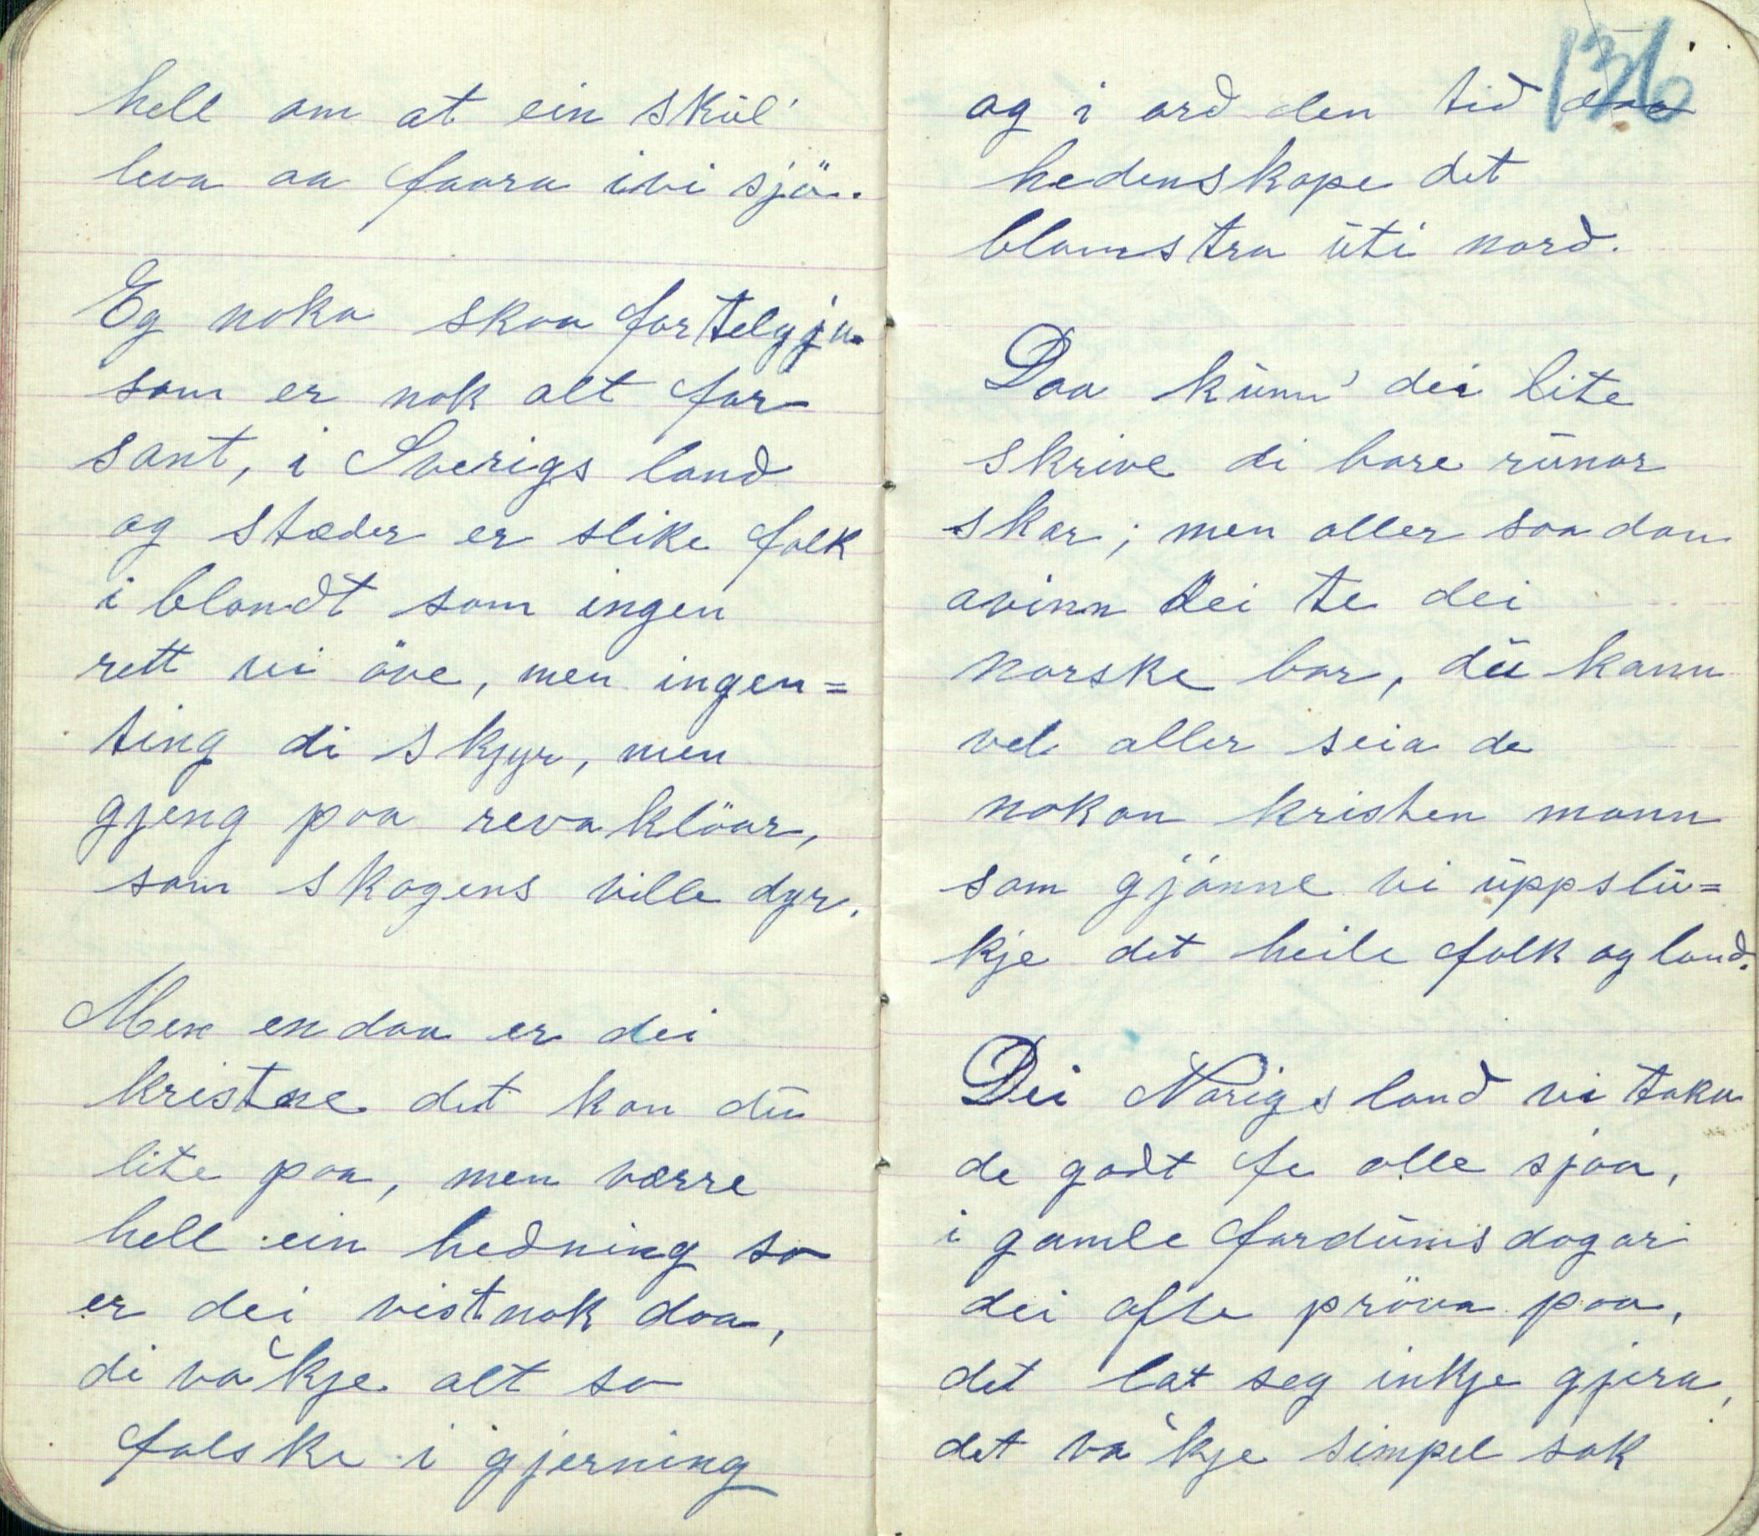 hell om at ein skül'
leva aa faara ivi sjö.
Eg noka skaa fortelgja.
som er nok alt for
sant, i Sverigs land
og stæder er slike folk
i blandt som ingen
rett vi öve, men ingen=
ting di skjyr, men
gjeng paa revaklöar,
som skogens ville dyr.
Men en daa er dei
kristne det kan dü
lite paa, men værre
hell ein hedning so
er dei vistnok daa,
di va'kje alt so
falske i gjerning
136
og i ord den tid daa
hedenskape det
blomstra üti nord.
Daa künn' dei lite
skrive di bare rünar
skar; men aller saa dan
avinn dei te dei
norske bar, dü kann
vel aller seia de
nokon kristen mann
som gjönne vi üppslü=
kje det heile folk og land.
Dei Norigs land vi taka
de godt fe alle sjaa,
i gamle fordümsdagar
dei ofte pröva paa,
det lat seg inkje gjera,
det va'kje simpel sak